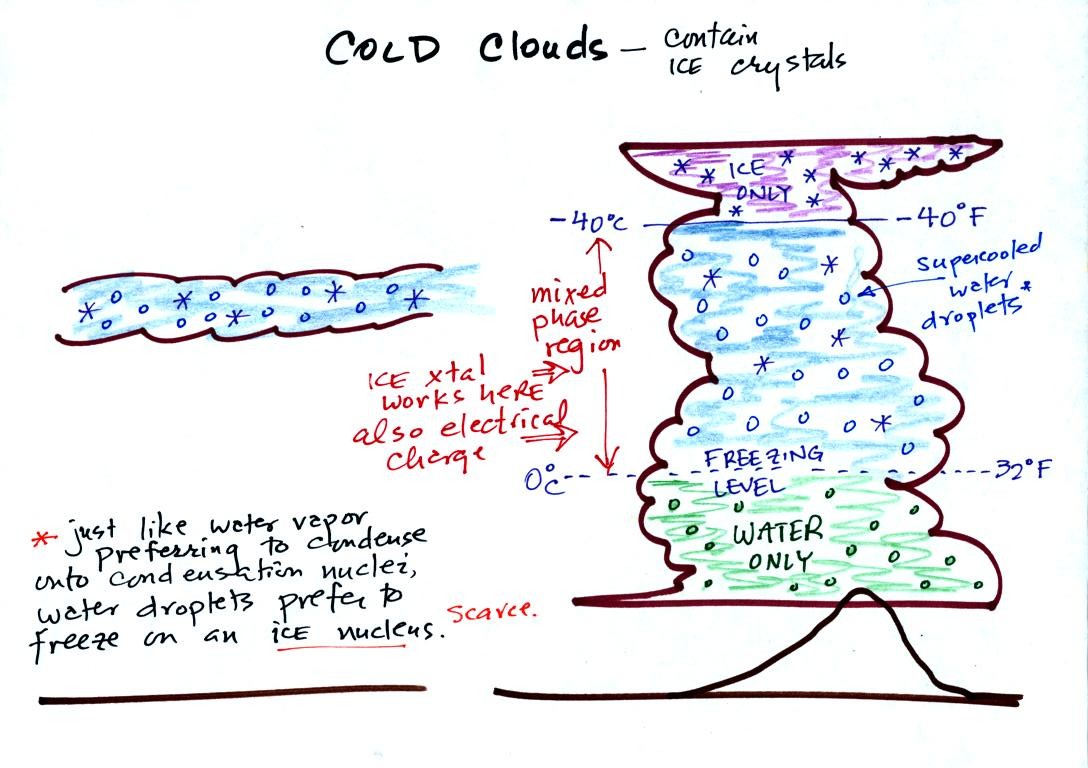 COLD Clouds – contain
ICE crystals
ICE
ONLY
-40°C
-40°F
supercooled
water *
droplets
mixed
phase
region
ICE xtal
works HERE
also electrical
charge
FREEZING
0°C
32°F
LEVEL
WATER
ONLY
* just like water vapor
preferring to condense
onto condensation nuclei,
water droplets prefer to
freeze on an ICE nucleus.
scarce.